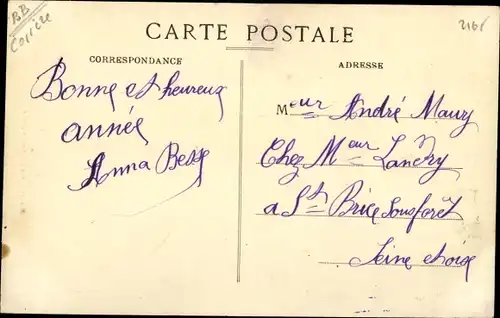 BB
Corrèze
2165
CARTE POSTALE
CORRESPONDANCE
ADRESSE
Bonne et heureuse
année
Anna Besse
Meur André Maury
Chez Meur Landry
a St Brice Sousforêt
Seine etoise